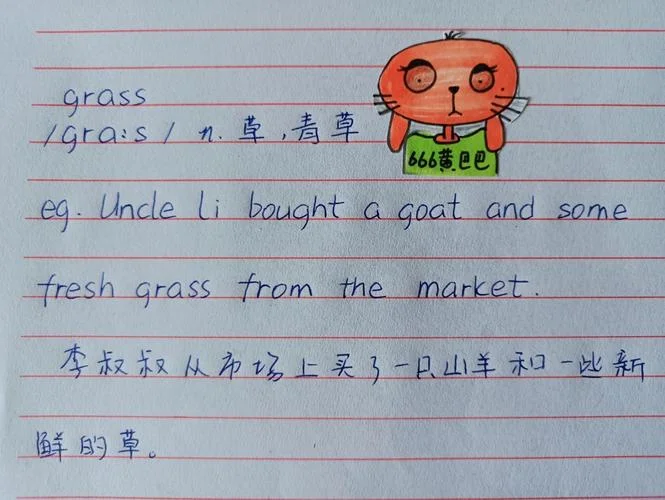 grass
/gra:s/ n. 草,青草
666黄巴巴
eg. Uncle li bought a goat and some
fresh grass from the market.
李叔叔从市场上买了一只山羊和一些新
鲜的草。